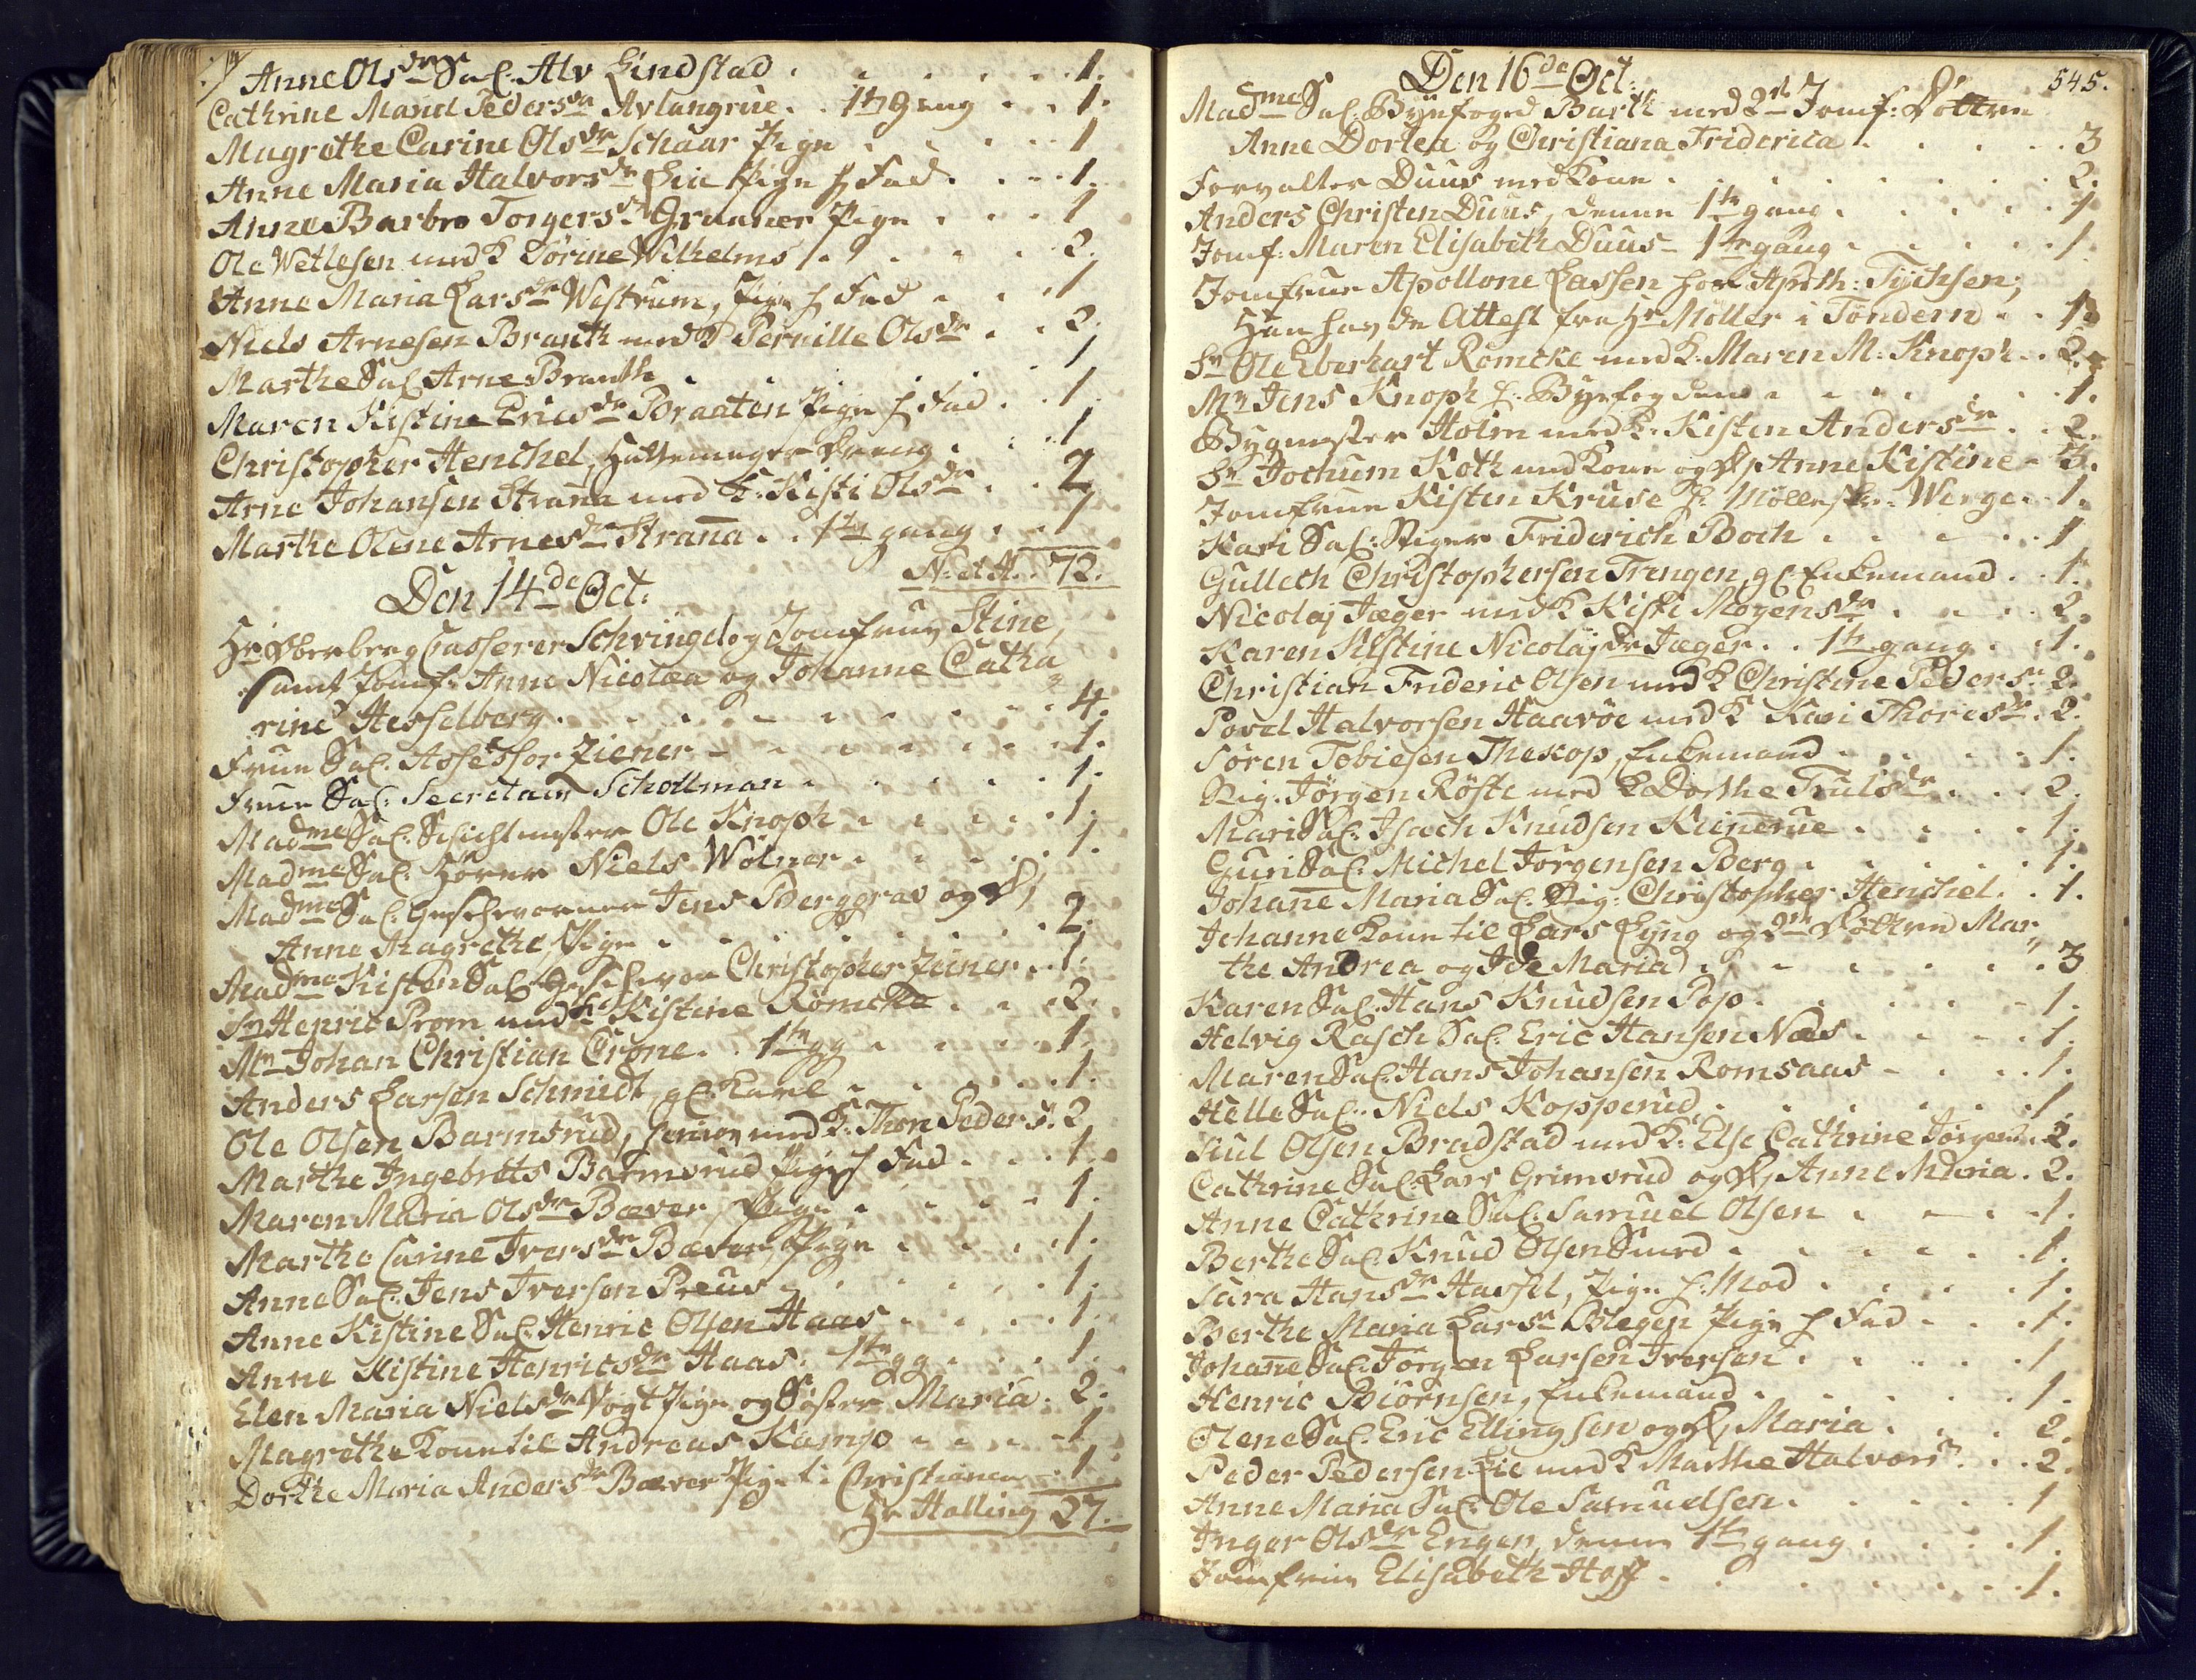 Anne Olsdr Sal. Alv Lindstad . . . 1.
Cathrine Marid Pedersdr Avlangrue . . 1te Gang . . 1.
Magrethe Carine Olsdr Schaar Pige . . . 1
Anne Maria Halvorsdr Lie Pige h Fad . . . 1.
Anne Barbro Torgersdr Gruuner Pige . . . 1
Ole Wetlesen med K Torine Wilhelms . . . 2.
Anne Maria Larsdr Westrum, Pige h Fad . . . 1
Niels Arnesen Branth med K Pernille Olsdr . . 2.
Marthe Sal. Arne Branth . . . 1
Maren Kistine Ericsdr Braaten Pige h Fad . . 1.
Christopher Henchel, Hattemager Dreng . . . 1
Arne Johansen Strana med K. Kisti Olsdr . . 2
Marthe Olene Arnesdr Strana . . 1te gang . . 1
N. et A. 72.
Den 14de Oct:
Hr Oberberg Casserer Schvingel og Jomfrue Stine,
samt Jomf. Anne Nicolea og Johanne Catha
rine Hesselberg . . . 4.
Frue Sal. Assessor Ziener . . . 1.
Frue Sal. Secretair Schollman . . . 1.
Madme Sal. Schichtmester Ole Knoph . . . 1.
Madme Sal. Hörer Niels Wölner . . . 1.
Madme Sal. Geschworner Jens Berggrav og D,
Anne Magrethe, Pige . . . 2.
Madme Kisten Sal. Geschvorn Christopher Zeiner . . 1.
Sr Henric Prom med K Kistine Römcke . . . 2.
Mr Johan Christian Crone . . 1te gg . . . 1.
Anders Larsen Schmidt, gl. Karl . . . 1.
Ole Olsen Barmsrud, senior med K. Thore Peders. 2
Marthe Ingebrets Barmsrud Pige h Fad . . . 1.
Maren Maria Olsdr Bæver, Pige . . . 1.
Marthe Carine Iversdr Bæver, Pige . . . 1.
Anne Sal. Jens Iversen Preus . . . 1.
Anne Kistine Sal. Henric Olsen Haas . . . 1.
Anne Kistine Henricsdr Haas . 1te gg . . . 1.
Elen Maria Nielsdr Vogt Pige og Söster Maria . 2.
Magrethe Kone til Andreas Kamp . . . 1
Dorthe Maria Andersdr Bæver Pige t. Christianen . 1
Hr Halling 27.
545.
Den 16de Oct:
Madme Sal. Byefoged Barth med 2de Jomf. Döttre
Anne Dortea og Christiana Friderica . . . 3
Forvalter Duus med Kone . . . 2.
Anders Christen Duus, denne 1te gang . . . 1
Jomf. Maren Elisabeth Duus 1te gang . . . 1.
Jomfrue Apollone Lassen hos Apoth: Tychsen,
Hun hav de Attest fra Hr Möller i Töndern . . 1.
Sr Ole Eberhart Römcke med K. Maren M. Knoph . . 2.
Mr Jens Knoph h. Byefogden . . . 1.
Bygmester Holm med K. Kisten Andersdr . . 2.
Sr Jochum Koth med Kone og D, Anne Kistine . 3.
Jomfrue Kisten Kruse h. Werge . . 1.
Kari Sal. Stiger Friderich Boch . . . 1
Gulleth Christophersen Trengen, gl. Enkemand . . 1.
Nicolaj Jæger med K Kisti Mogensdr . . . 2.
Karen Kistine Nicolajdr Jæger . . 1te gang . . 1.
Christian Frideric Olsen med K Christine Peders. 2.
Povel Halvorsen Haavöe med K Kari Thoresdr . 2.
Sören Tobiesen Thekop, Enkemand . . . 1.
Stig. Jörgen Röste med K Dorthe Trulsdr . . . 2.
Mari Sal. Isach Knudsen Kienerue . . . 1.
Guri Sal. Michel Jörgensen Berg . . . 1.
Johane Maria Sal. Stig: Christopher Henchel . . 1.
Johanne Kone til Lars Lyng og 2de Döttre Mar
the Andrea og Ide Maria . . . 3
Karen Sal. Hans Knudsen Pop . . . 1.
Helvig Rasch Sal. Eric Hansen Næs . . . 1.
Maren Sal. Hans Johansen Romsaas . . . 1.
Helle Sal. Niels Kopperud . . . 1
Juul Olsen Bradstad med K. Else Cathrine Jörgens. 2.
Cathrine Sal. Lars Grimsrud og D, Anne Maria . 2.
Anne Cathrine Sal. Samuel Olsen . . . 1.
Berthe Sal. Knud Olsen Smed . . . 1.
Sara Hansdr Hassel, Pige h. Mod . . . 1.
Berthe Maria Larsdr Blegen Pige h Fad . . . 1.
Johane Sal. Jörgen Larsen Iversen . . . 1
Henric Biörnsen, Enkemand . . . 1.
Olene Sal. Eric Ellingsen og D, Maria . . . 2.
Peder Pedersen Lie med K Marthe Halvors. . . 2.
Anne Maria Sal. Ole Samuelsen . . . 1
Inger Olsdr Engen, denne 1te gang . . . 1.
Jomfrue Elisabeth Hoff . . . 1.